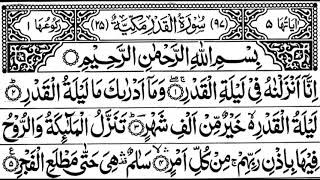 اٰیَاتُهَا ۵ (۹۷) سُوْرَةُ الْقَدْرِ مَكِّيَّةٌ (۲۵) رُكُوْعُهَا ۱
بِسْمِ اللّٰهِ الرَّحْمٰنِ الرَّحِيْمِ
اِنَّاۤ اَنْزَلْنٰهُ فِیْ لَیْلَةِ الْقَدْرِ ۝۱ وَمَاۤ اَدْرٰىكَ مَا لَیْلَةُ الْقَدْرِ ۝۲
لَیْلَةُ الْقَدْرِ ۙ خَیْرٌ مِّنْ اَلْفِ شَهْرٍ ۝۳ تَنَزَّلُ الْمَلٰٓىِٕكَةُ وَالرُّوْحُ
فِیْهَا بِاِذْنِ رَبِّهِمْ ۚ مِنْ كُلِّ اَمْرٍ ۝۴ سَلٰمٌ ۛ هِیَ حَتّٰی مَطْلَعِ الْفَجْرِ ۝۵